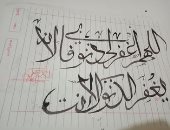 اللهم اغفر لي ذنوبي فإنه لا
يغفر الذنوب إلا أنت